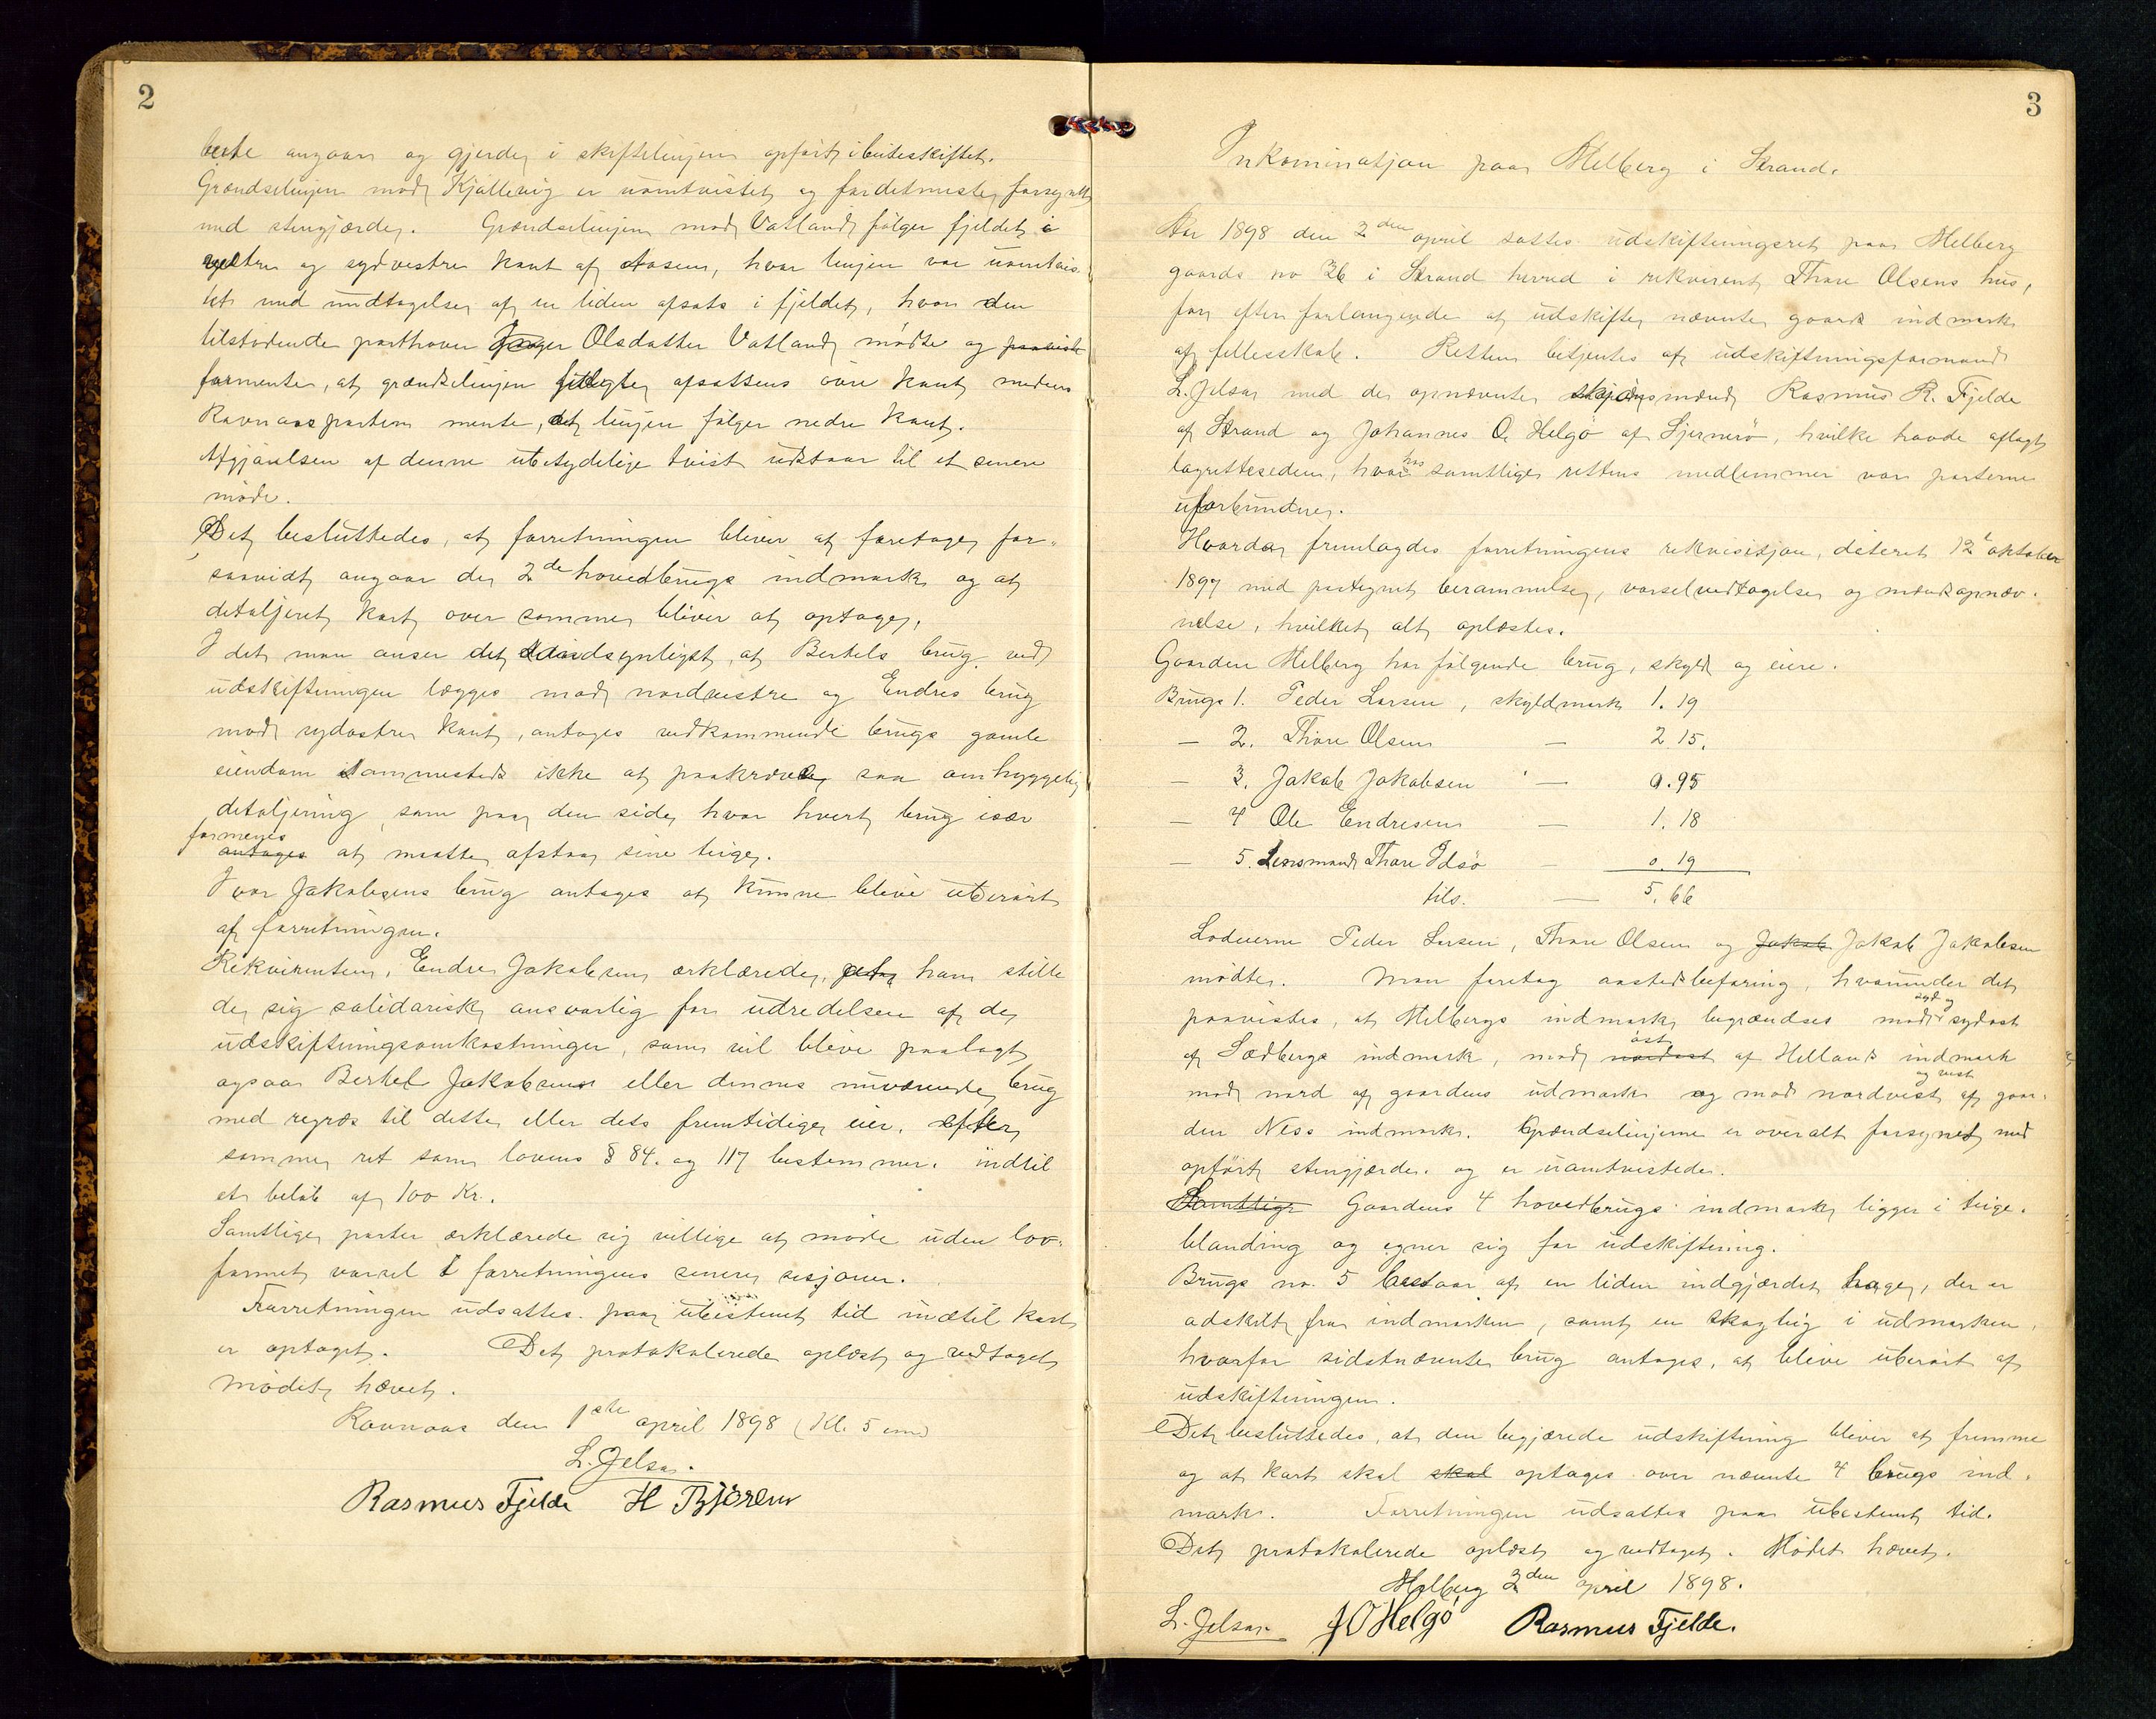 2
beste angaar og gjerder i skiftelinjen opført i buteskiftet.
Grændselinjen mod Kjøllevig er uomtvistet og fordetmeste forsynet
med stengjerder. Grændselinjen mod Vatland følger fjeldet i
vestre og sydvestre kant af Aasen, hvor linjen var uomtvis-
tet med undtagelse af en liden afsats i fjeldet, hvor den
tilstødende parthaver Olsdatter Vatland mødte og paaviste
formente, at grændselinjen fulgte afsatsens øvre kant, medens
Ravnaas parten mente, at linjen følger nedre kant.
Afgjørelsen af denne ubetydelige tvist udstaar til et senere
møde.
Det besluttedes, at forretningen bliver at foretage for-
saavidt angaar de 2de hovedbrugs indmark og at
detaljeret kart over samme bliver at optage.
I det man anser det sandsynligst, at Bertels brug ved
udskiftningen lægges mod nordvestre og Endres brug
mod sydøstre kant, antages vedkommende brugs gamle
eiendom sammesteds ikke at paakræve saa omhyggelig
detaljering, som paa den side, hvor hvert brug især
formenes
antages at maatte afstaa sine teiger.
Ivar Jakobsens brug antages at kunne blive uberørt
af forretningen.
Rekvirenten, Endre Jakobsen erklærede, at han stille
de sig solidarisk ansvarlig for udredelsen af de
udskiftningsomkostninger, som vil blive paalagt
ogsaa Bertel Jakobsens eller dennes nuværende brug
med regres til dette eller dets fremtidige eier, efter
samme ret som lovens § 84. og 117 bestemmer. indtil
et beløb af 100 Kr.
Samtlige parter erklærede sig villige at møde uden lov-
formet varsel t forretningens senere sesjoner.
Forretningen udsattes paa ubestemt tid indtil kart
er optaget. Det protokolerede oplæst og vedtaget
Mødet hævet.
Ravnaas den 1ste april 1898 (Kl. 5 em)
L. Jelsa.
Rasmus Fjelde H Bjøren
3
Inkominasjon paa Melberg i Strand.
Aar 1898 den 2den april sattes udskiftningsret paa Melberg
gaards no 36 i Strand herred i rekvirent Thore Olsens hus,
for efter forlangende at udskifte nævnte gaards indmark
af fellesskab. Retten betjentes af udskiftningsformand
L. Jelsa med de opnævnte skjønsmænd Rasmus R. Fjelde
af Strand og Johannes O. Helgø af Sjernerø, hvilke havde aflagt
lagrettesedem, hvorhos samtlige rettens medlemmer var parterne
uforbundne.
Hvorda fremlagdes forretningens rekvisisjon, dateret 12te oktober
1897 med paategnet berammelse, varselvedtagelse og mændsopnæv-
nelse, hvilket alt oplæstes.
Gaarden Melberg har følgende brug, skyld og eiere.
Brugs 1. Peder Larsen, skyldmark 1.19
— 2. Thore Olsen — 2.15.
— 3. Jakob Jakobsen — 0.95
— 4 Ole Endresen — 1.18
— 5. Lensmand Thore Idsø — 0.19
tils. — 5.66
Lodeierne Peder Larsen, Thore Olsen og Jakob Jakob Jakobsen
mødte. Man foretog aastedsbefaring, hvorunder det
paavistes, at Melbergs indmark begrændses mod syd og sydøst
af Sædbergs indmark, mod nordøst øst af Hellands indmark
mod nord af gaardens udmark og mod nordvest og vest af gaar-
den Ness indmark. Grændselinjerne er overalt forsynet med
opført stengjerder. og er uomtvistede.
Samtlige Gaardens 4 hovedbrugs indmark ligger i teige-
blanding og egner sig for udskiftning.
Brugs no. 5 bestaar af en liden indgjærdet hage, der er
adskilt fra indmarken, samt en skogteig i udmarken,
hvorfor sidstnævnte brug antages, at blive uberørt af
udskiftningen.
Det besluttedes, at den begjærede udskiftning bliver at fremme
og at kart skal skal optages over nævnte 4 brugs ind-
mark. Forretningen udsattes paa ubestemt tid.
Det protokolerede oplæst og vedtaget. Mødet hævet.
Melberg 2den april 1898.
L. Jelsa. J O Helgø Rasmus Fjelde.